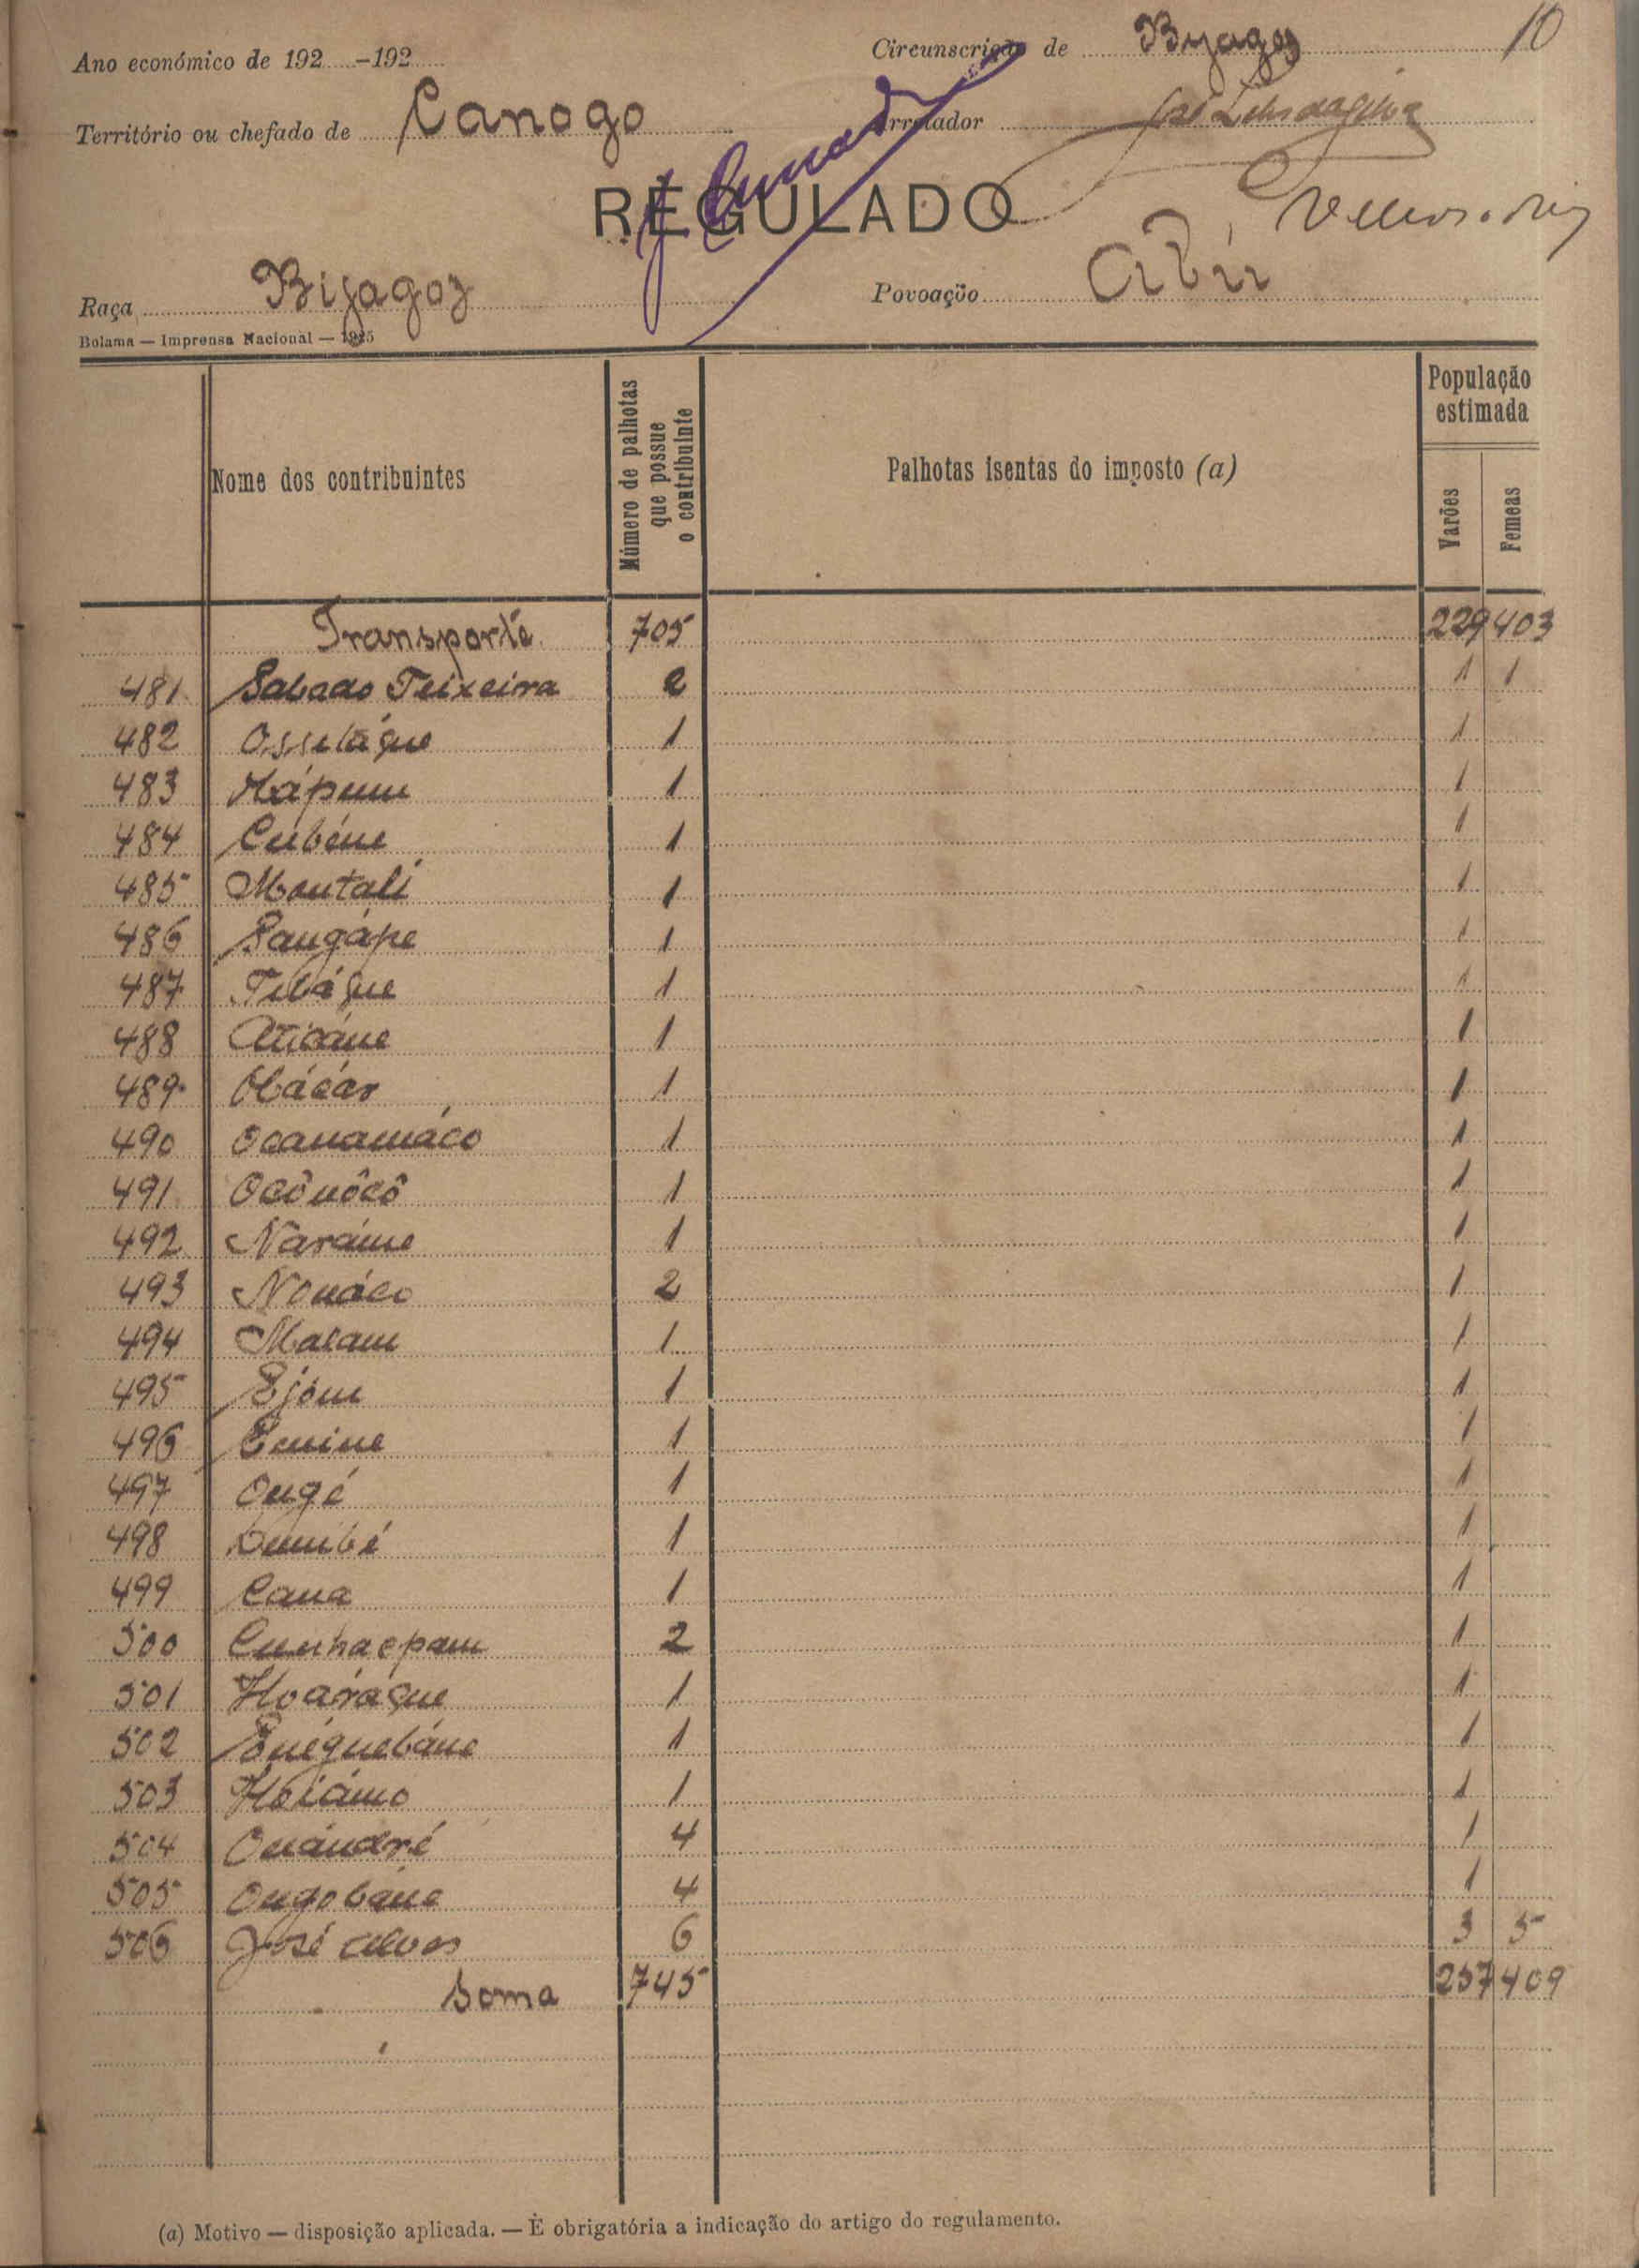 10
Ano económico de 192.....-192..... Circunscrição de Bijagoz
Território ou chefado de Canogo Arrolador
REGULADO
Raça Bijagoz Povoação
Bolama — Imprensa Nacional — 1925
Nome dos contribuintes | Número de palhotas que possue o contribuinte | Palhotas isentas do imposto (a) | População estimada Varões Femeas
Transporte 705 229 403
481 Sabado Teixeira 2 1 1
482 Ossetáque 1 1
483 Hápunu 1 1
484 Cubéne 1 1
485 Montali 1 1
486 Pangápe 1 1
487 Tibáque 1 1
488 Aticáne 1 1
489 Obácár 1 1
490 Ocanamáco 1 1
491 Ocônôcô 1 1
492 Naráme 1 1
493 Nonáco 2 1
494 Malam 1 1
495 Ejóm 1 1
496 Emine 1 1
497 Ougé 1 1
498 1 1
499 Cana 1 1
500 Cunhaepam 2 1
501 Hoáráque 1 1
502 Enéquebáne 1 1
503 Hoiámo 1 1
504 Ouándré 4 1
505 Ougobane 4 1
506 José Alves 6 3 5
Soma 745 257 409
(a) Motivo — disposição aplicada. — É obrigatória a indicação do artigo do regulamento.